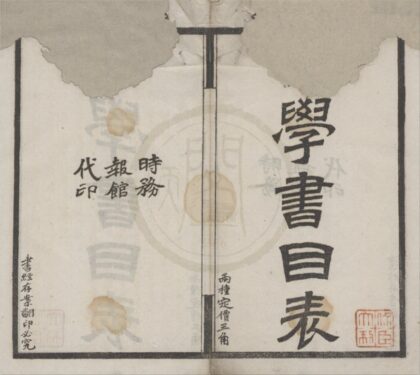 學書目表
兩種定價三角
時務
報館
代印
書經存案翻印必究